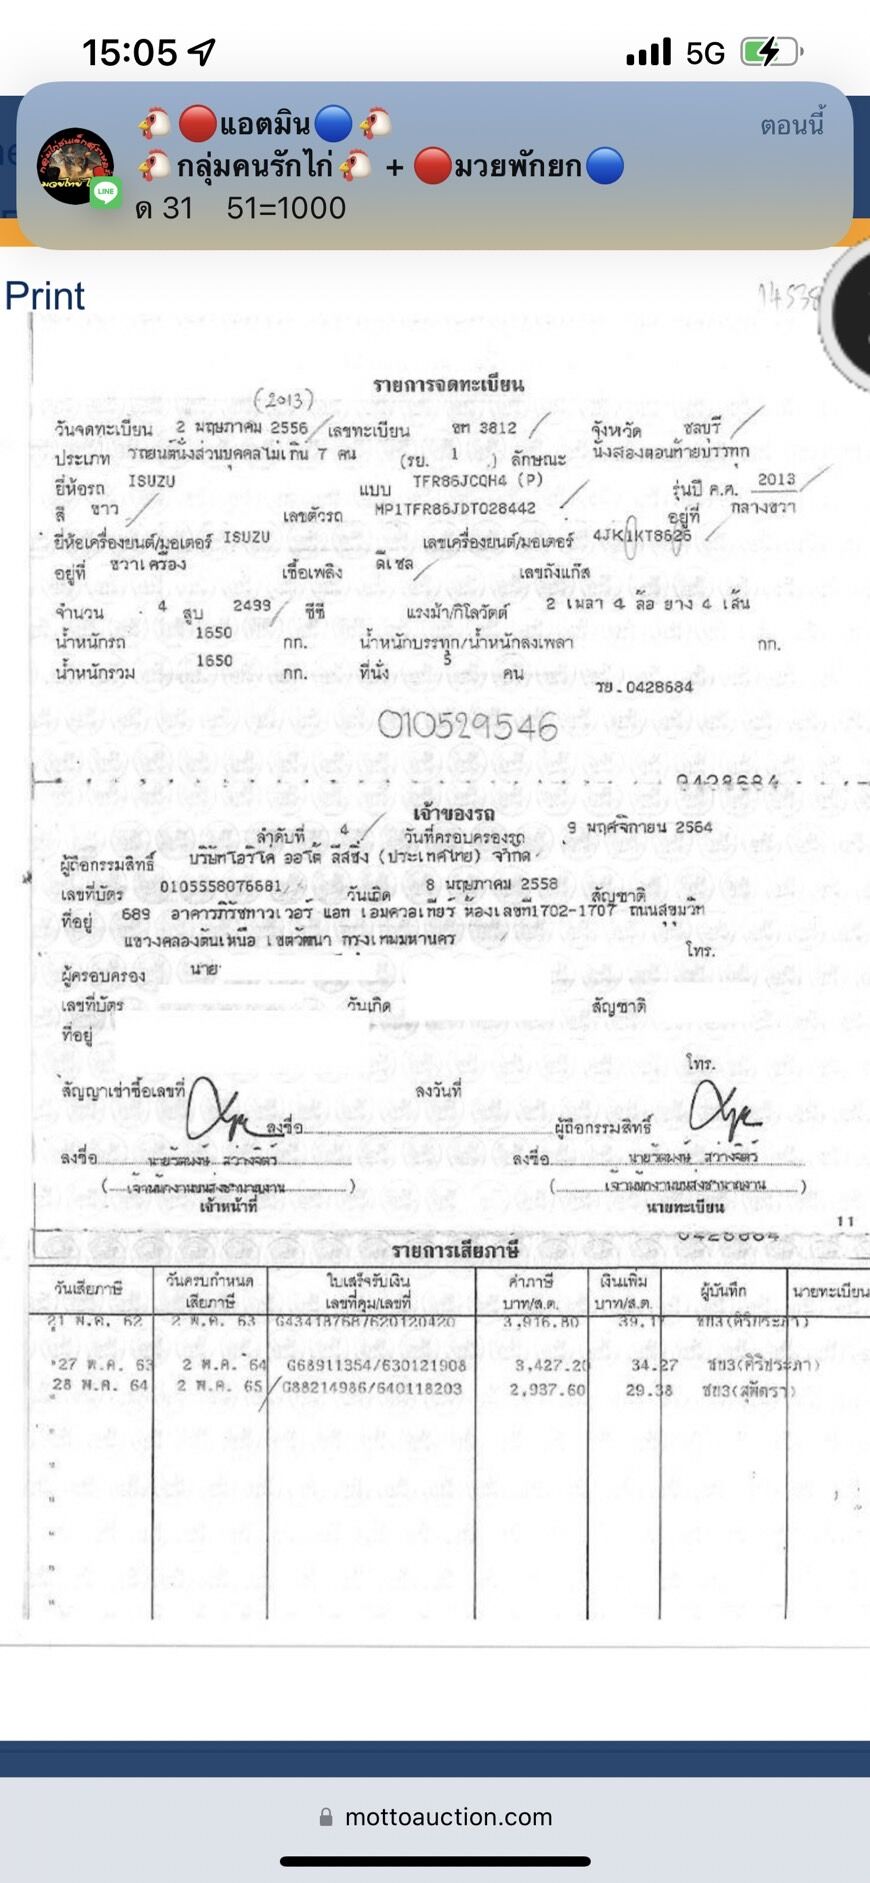 15:05
5G
🐔🔴แอตมิน🔵🐔
ตอนนี้
🐔กลุ่มคนรักไก่🐔 + 🔴มวยพักยก🔵
ด 31 51=1000
LINE
Print
รายการจดทะเบียน
(2013)
วันจดทะเบียน 2 พฤษภาคม 2556 เลขทะเบียน 3812 จังหวัด ชลบุรี
ประเภท รถยนต์นั่งส่วนบุคคลไม่เกิน 7 คน (รย. 1 ) ลักษณะ นั่งสองตอนท้ายบรรทุก
ยี่ห้อรถ ISUZU แบบ TFR86JCQH4 (P) รุ่นปี ค.ศ. 2013
สี ขาว เลขตัวรถ MP1TFR86JDT028442 อยู่ที่ กลางขวา
ยี่ห้อเครื่องยนต์/มอเตอร์ ISUZU เลขเครื่องยนต์/มอเตอร์ 4JK1KT8626
อยู่ที่ ขวาเครื่อง เชื้อเพลิง ดีเซล เลขถังแก๊ส
จำนวน 4 สูบ 2499 ซีซี แรงม้า/กิโลวัตต์ 2 เพลา 4 ล้อ ยาง 4 เส้น
น้ำหนักรถ 1650 กก. น้ำหนักบรรทุก/น้ำหนักลงเพลา กก.
น้ำหนักรวม 1650 กก. ที่นั่ง 5 คน
รย.0428684
010529546
เจ้าของรถ
ลำดับที่ 4 วันที่ครอบครองรถ 9 พฤศจิกายน 2564
ผู้ถือกรรมสิทธิ์ บริษัทโอริโค่ ออโต้ ลีสซิ่ง (ประเทศไทย) จำกัด
เลขที่บัตร 0105558076681 วันเกิด 8 พฤษภาคม 2558 สัญชาติ
ที่อยู่ 689 อาคารภิรัชทาวเวอร์ แอท เอมควอเทียร์ ห้องเลขที่1702-1707 ถนนสุขุมวิท
แขวงคลองตันเหนือ เขตวัฒนา กรุงเทพมหานคร โทร.
ผู้ครอบครอง นาย
เลขที่บัตร วันเกิด สัญชาติ
ที่อยู่
โทร.
สัญญาเช่าซื้อเลขที่ ลงวันที่
ลงชื่อ ผู้ถือกรรมสิทธิ์
ลงชื่อ ลงชื่อ
(เจ้าพนักงานขนส่งชำนาญงาน) (เจ้าพนักงานขนส่งชำนาญงาน)
เจ้าหน้าที่ นายทะเบียน
11
รายการเสียภาษี
วันเสียภาษี วันครบกำหนดเสียภาษี ใบเสร็จรับเงิน เลขที่คุม/เลขที่ ค่าภาษี บาท/ส.ต. เงินเพิ่ม บาท/ส.ต. ผู้บันทึก นายทะเบียน
21 พ.ค. 62 2 พ.ค. 63 G43418768/620120420 3,916.80
27 พ.ค. 63 2 พ.ค. 64 G68911354/630121908 3,427.20 34.27 ชย3(ศิริประภา)
28 พ.ค. 64 2 พ.ค. 65 G88214986/640118203 2,937.60 29.38 ชย3(สุพัตรา)
mottoauction.com